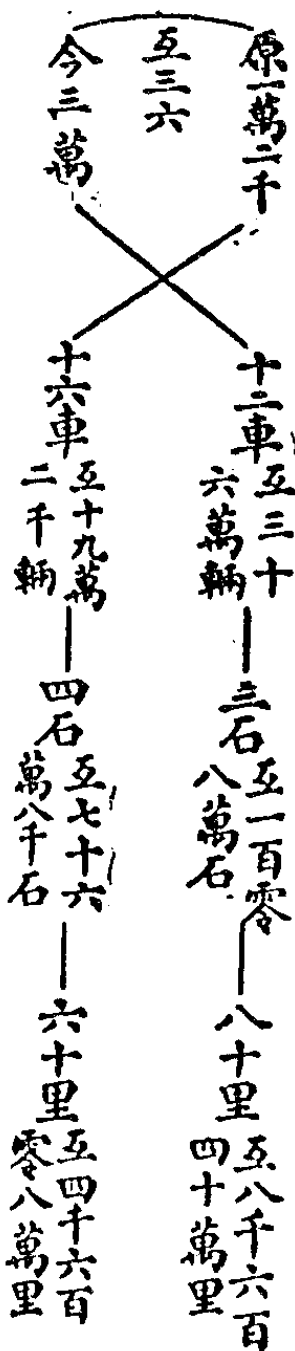 原一萬二千
互三六
今三萬
十二車
互三十
六萬輛
三石
互一百零
八萬石
八十里
互八千六百
四十萬里
十六車
互十九萬
二千輛
四石
互七十六
萬八千石
六十里
互四千六百
零八萬里